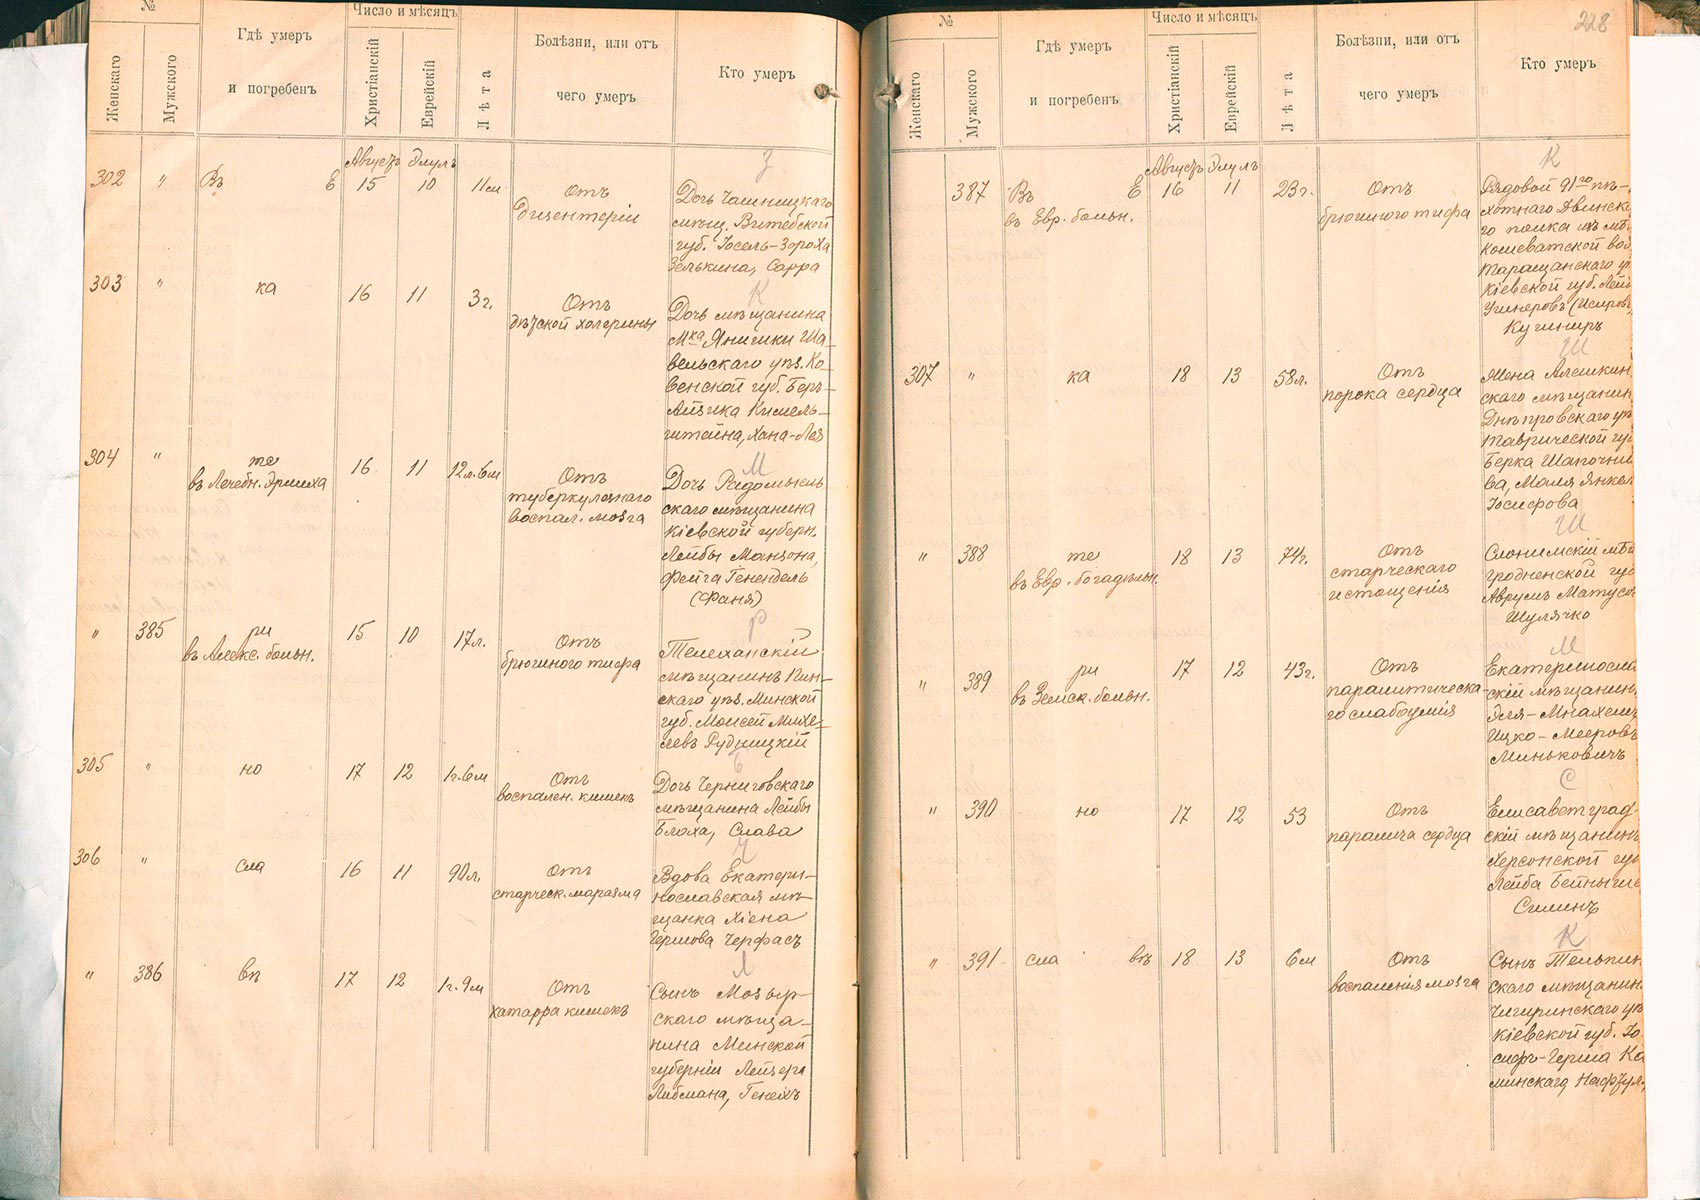 №
Число и мѣсяцъ
Женскаго
Мужского
Гдѣ умеръ
и погребенъ
Христіанскій
Еврейскій
Лѣта
Болѣзни, или отъ
чего умеръ
Кто умеръ
Августъ Элулъ
З
302 " Въ Е 15 10 11 м
Отъ
Дизентеріи
Дочь Чашницкаго
мѣщ. Витебской
губ. Іосель-Зороха
Зелькина, Сарра
303 " ка 16 11 3 г.
Отъ
дѣтской холерины
К
Дочь мѣщанина
м-ка Янишки Ша-
вельскаго уѣз. Ко-
венской губ. Беръ-
Айзика Кимель-
штейна, Хана-Лея
304 " те 16 11 12 л. 6 м
въ Лечебн.
Отъ
туберкулезнаго
воспал. мозга
М
Дочь Радомысль
скаго мѣщанина
Кіевской губерн.
Лейбы Манзона,
Фейга Генендель
(Фаня)
" 385 ри 15 10 17 л.
въ Алекс. больн.
Отъ
брюшного тифа
Р
Телеханскій
мѣщанинъ Пин-
скаго уѣз. Минской
губ. Моисей Михе-
левъ Рудницкій
305 " но 17 12 1 г. 6 м
Отъ
воспален. кишекъ
Дочь Черниговскаго
мѣщанина Лейбы
Блоха, Слава
306 " сла 16 11 90 л.
Отъ
старческ. маразма
Ч
Вдова Екатери-
нославская мѣ-
щанка Хіена
Гершова Черфасъ
" 386 вѣ 17 12 1 г. 9 м
Отъ
катарра кишекъ
Л
Сынъ Мозыр-
скаго мѣща-
нина Минской
губерніи Лейзера
Либмана, Генехъ
228
№
Число и мѣсяцъ
Женскаго
Мужского
Гдѣ умеръ
и погребенъ
Христіанскій
Еврейскій
Лѣта
Болѣзни, или отъ
чего умеръ
Кто умеръ
Августъ Элулъ
К
387 Въ Е 16 11 23 г.
въ Евр. больн.
Отъ
брюшного тифа
Рядовой 91го пѣ-
хотнаго Двинска
го полка изъ мѣ
Кошеватской во
Таращанскаго у
Кіевской губ. Лей
Кушниръ
Ш
307 " ка 18 13 58 л.
Отъ
порока сердца
Жена Алешкин
скаго мѣщанин
Днѣпровскаго уѣ
Таврической гу
Берка Шапочни
ва, Маля Янкел
Іосифова
Ш
" 388 те 18 13 74 г.
въ Евр. богадѣльн.
Отъ
старческаго
истощенія
Слонимскій мѣщ
Гродненской губ
Аврумъ Матусо
Шулячко
М
" 389 ри 17 12 43 г.
въ Земск. больн.
Отъ
паралитическа-
го слабоумія
Екатеринослав
скій мѣщанин
Эля-Мнахемъ
Ицко-Мееровъ
Миньковичъ
С
" 390 но 17 12 53
Отъ
паралича сердца
Елисаветград-
скій мѣщанинъ
Херсонской гу
Лейба
Симинъ
К
" 391 сла вѣ 18 13 6 м
Отъ
воспаленія мозга
Сынъ Тельпин
скаго мѣщанин
Чигиринскаго уѣ
Кіевской губ. Іо
сифъ-Герша Ка
минскаго, Нафтул